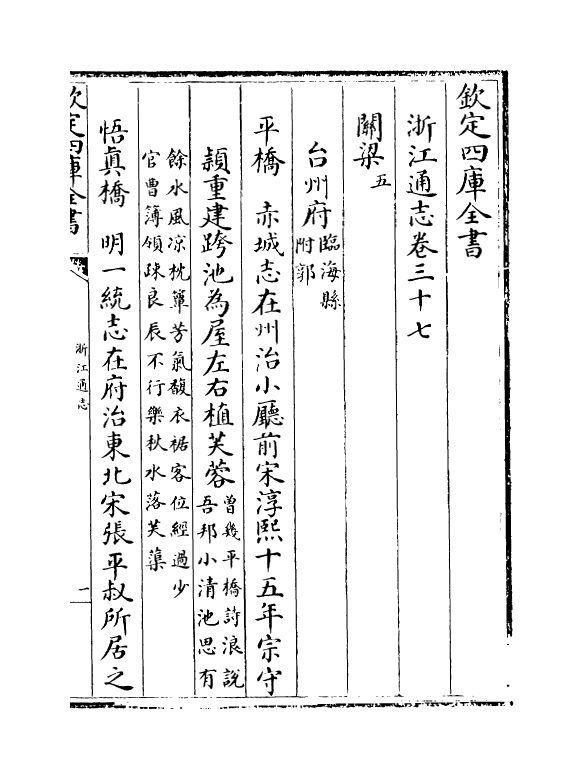 欽定四庫全書
浙江通志卷三十七
關梁五
台州府臨海縣
附郭
平橋 赤城志在州治小廳前宋淳熙十五年宗守
頴重建跨池為屋左右植芙蓉曾幾平橋詩浪說
吾邦小清池思有
餘水風凉枕簟芳氣馥衣裾客位經過少
官曹簿領踈良辰不行樂秋水落芙蕖
悟眞橋 明一統志在府治東北宋張平叔所居之
欽定四庫全書
浙江通志
一